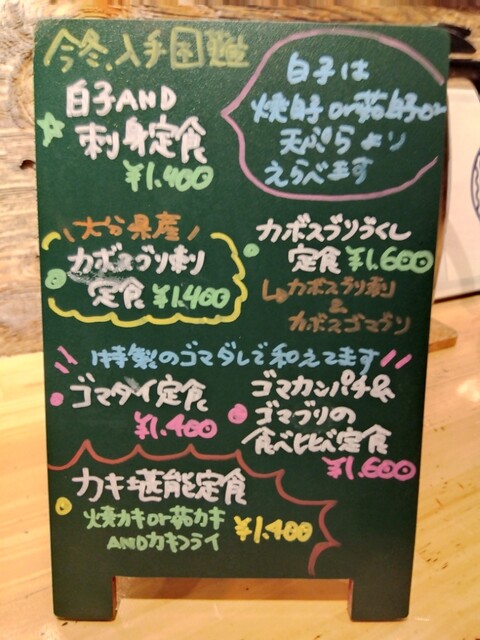 今冬、入手困難
白子AND
刺身定食
¥1.400
白子は
焼白子or茹白子or
天ぷらより
えらべます
\大分県産/
カボスブリ刺
定食 ¥1.400
カボスブリづくし
定食 ¥1.600
↳カボスブリ刺
&
カボスゴマブリ
特製のゴマダレで和えてます
ゴマダイ定食
¥1.400
ゴマカンパチ&
ゴマブリの
食べ比べ定食
¥1.600
カキ堪能定食
焼カキor茹カキ
ANDカキフライ
¥1.400